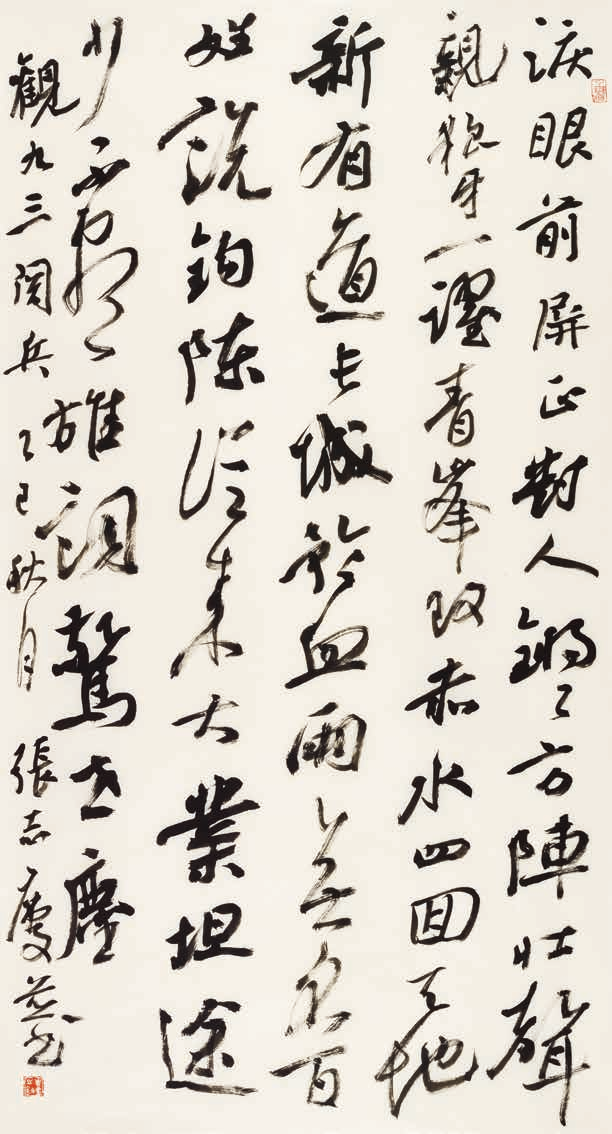 淚眼前屏正對人鏘々方陣壯聲
親狼牙一躍青峯改赤水四回天地
新有道長城血雨無名百
姓說鈞陳從來大業坦途
少不雄詞驚世塵
觀九三閱兵 乙巳秋月 張志慶並書